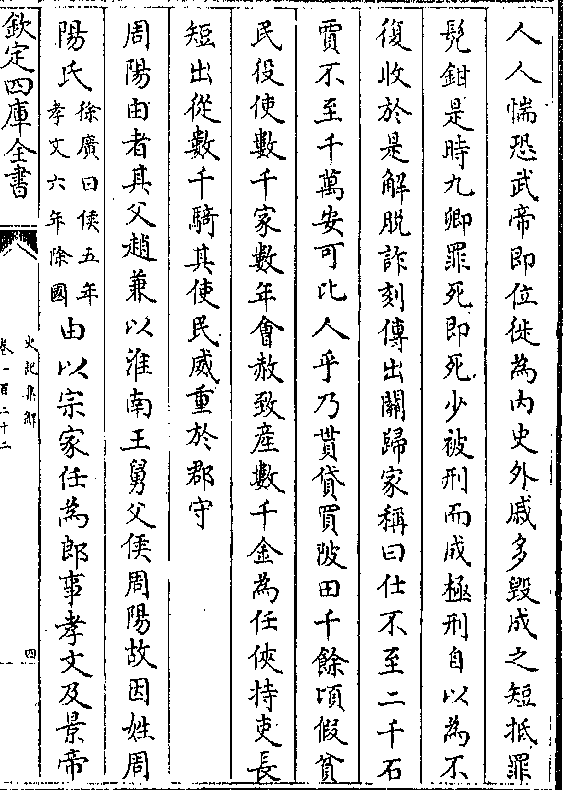 人人惴恐武帝即位徙為内史外戚多毀成之短抵罪
髠鉗是時九卿罪死即死少被刑而成極刑自以為不
復收於是解脱詐刻傳出關歸家稱曰仕不至二千石
賈不至千萬安可比人乎乃貰貸買陂田千餘頃假貧
民役使數千家數年會赦致産數千金為任俠持吏長
短出從數千騎其使民威重於郡守
周陽由者其父趙兼以淮南王舅父侯周陽故因姓周
陽氏徐廣曰侯五年孝文六年除國由以宗家任為郎事孝文及景帝
欽定四庫全書
史記集解
卷一百二十二
四